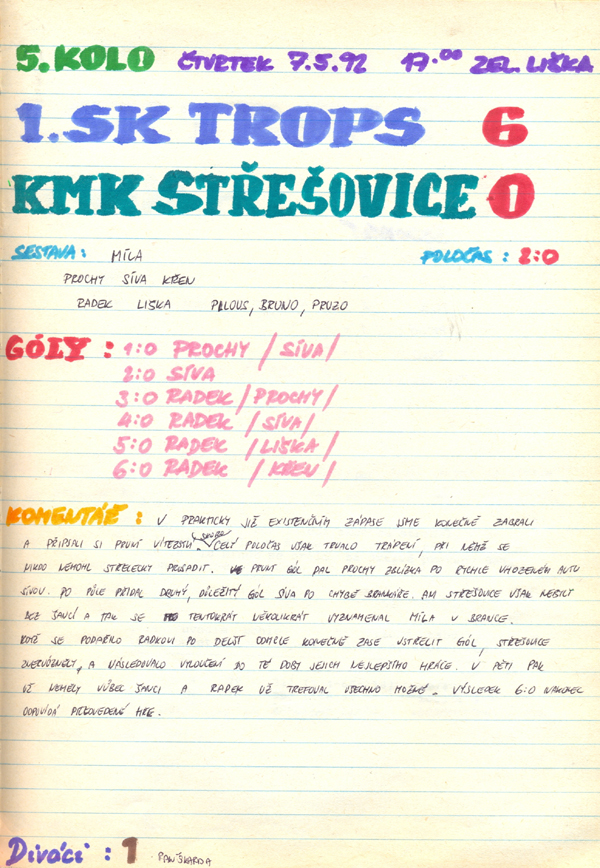 5. KOLO ČTVRTEK 7.5.92 17.00 ZEL. LIŠKA
1.SK TROPS 6
KMK STŘEŠOVICE 0
SESTAVA: MÍLA POLOČAS: 2:0
PROCHY SÍVA KŘEN
RADEK LISKA PLOUS, BRUNO, PRUZO
GÓLY: 1:0 PROCHY /SÍVA/
2:0 SÍVA
3:0 RADEK /PROCHY/
4:0 RADEK /SÍVA/
5:0 RADEK /LIŠKA/
6:0 RADEK /KŘEN/
KOMENTÁŘ: V PRAKTICKY JIŽ EXISTENČNÍM ZÁPASE JSME KONEČNĚ ZABRALI
A PŘIPSALI SI PRVNÍ VÍTĚZSTVÍ. CELÝ POLOČAS VŠAK TRVALO TRÁPENÍ, PŘI NĚMŽ SE
NIKDO NEMOHL STŘELECKY PROSADIT. PRVNÍ GÓL DAL PROCHY ZBLÍZKA PO RYCHLE VHOZENÉM AUTU
SÍVOU. PO PŮLE PŘIDAL DRUHÝ, DŮLEŽITÝ GÓL SÍVA PO CHYBĚ BRANKÁŘE. ANI STŘEŠOVICE VŠAK NEBYLY
BEZ ŠANCÍ A TAK SE TENTOKRÁT NĚKOLIKRÁT VYZNAMENAL MÍLA V BRANCE.
KDYŽ SE PODAŘILO RADKOVI PO DELŠÍ ODMLCE KONEČNĚ ZASE VSTŘELIT GÓL, STŘEŠOVICE
ZNERVÓZNĚLY, A NÁSLEDOVALO VYLOUČENÍ DO TÉ DOBY JEJICH NEJLEPŠÍHO HRÁČE. V PĚTI PAK
UŽ NEMĚLY VŮBEC ŠANCI A RADEK UŽ TREFOVAL VŠECHNO MOŽNÉ. VÝSLEDEK 6:0 NAKONEC
ODPOVÍDÁ PŘEDVEDENÉ HŘE.
Diváci: 1 PAN ŠKARDA